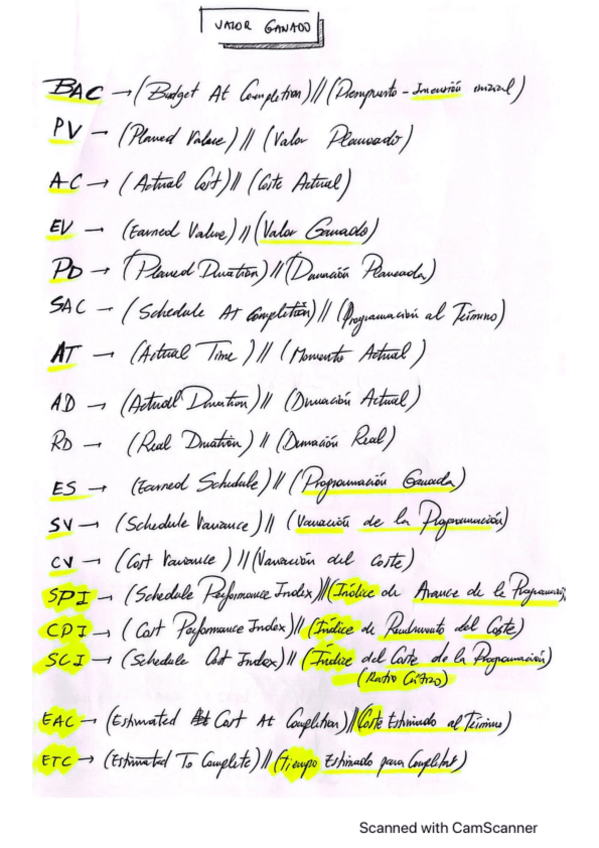 VALOR GANADO
BAC → (Budget At Completion) // (Presupuesto - Inversión inicial)
PV → (Planed Value) // (Valor Planeado)
AC → (Actual Cost) // (Coste Actual)
EV → (Earned Value) // (Valor Ganado)
PD → (Planed Duration) // (Duración Planeada)
SAC → (Schedule At Completion) // (Programación al Término)
AT → (Actual Time) // (Momento Actual)
AD → (Actual Duration) // (Duración Actual)
RD → (Real Duration) // (Duración Real)
ES → (Earned Schedule) // (Programación Ganada)
SV → (Schedule Variance) // (Variación de la Programación)
CV → (Cost Variance) // (Variación del Coste)
SPI → (Schedule Performance Index) // (Índice de Avance de la Programación
CPI → (Cost Performance Index) // (Índice de Rendimiento del Coste)
SCI → (Schedule Cost Index) // (Índice del Coste de la Programación)
(Ratio Crítico)
EAC → (Estimated Cost At Completion) // (Coste Estimado al Término)
ETC → (Estimated To Complete) // (Tiempo Estimado para Completar)
Scanned with CamScanner